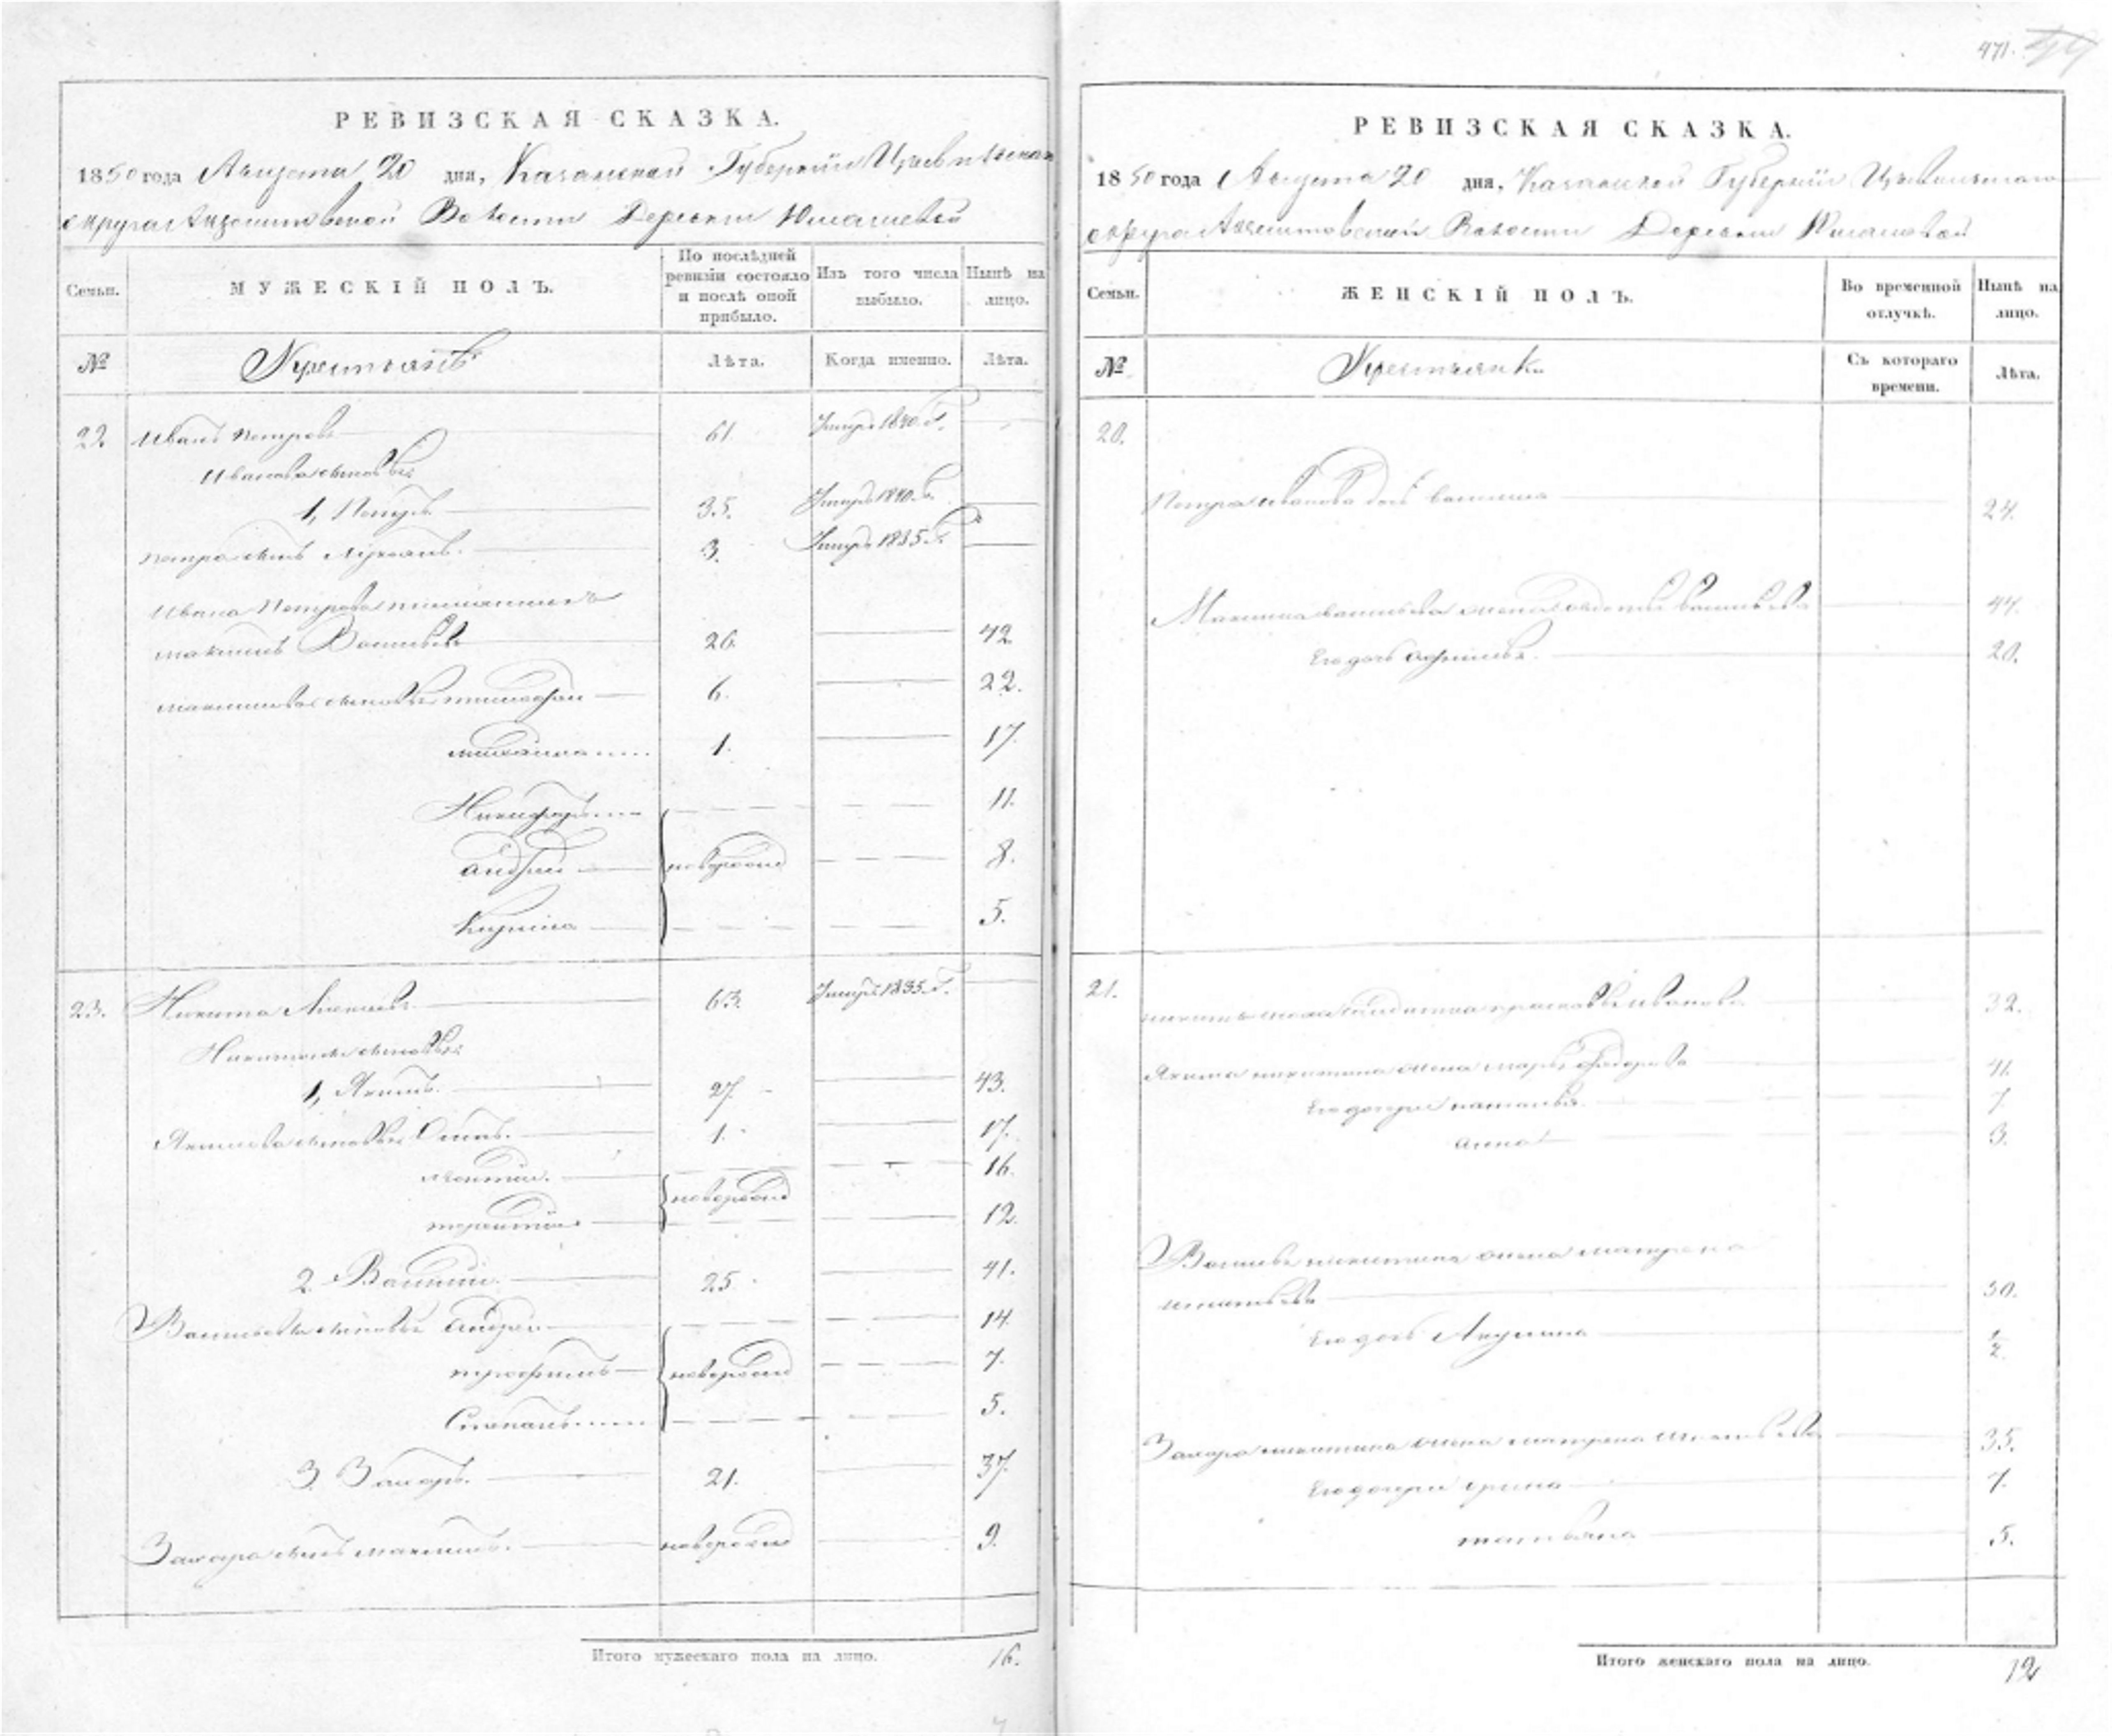 471.
РЕВИЗСКАЯ СКАЗКА.
1850 года Августа 20 дня, Казанской Губернiи Цивильскаго
округа Волости Деревни Юмашевой
Семьи.
МУЖЕСКІЙ ПОЛЪ.
По послѣдней ревизіи состояло и послѣ оной прибыло.
Изъ того числа выбыло.
Нынѣ на лицо.
№
Крестьянъ
Лѣта.
Когда именно.
Лѣта.
22. Иванъ Петровъ 61 Умеръ 1840. г.
Ивановы сыновья
1, Петръ 35. Умеръ 1840. г.
Петра сынъ Лукьянъ. 3. Умеръ 1835. г.
Ивана Петрова племянникъ
Максимъ Васильевъ 26. 42
Максимовы сыновья Тимофей 6. 22.
Михайла 1. 17.
Никифоръ 11.
Андрей новорожд 8.
Кирила 5.
23. Никита Алексеевъ 63. Умеръ 1835. г.
Никитины сыновья
1, Якимъ 27. 43.
Якимовы сыновья Осипъ. 1. 17.
Леонтий. новорожд 16.
Терентiй 12.
2. Василий. 25. 41.
Васильевы сыновья Андрей 14.
Трофимъ новорожд 7.
Степанъ 5.
3. Захаръ. 21. 37.
Захара сынъ Максимъ. новорожд 9.
Итого мужескаго пола на лицо. 16.
РЕВИЗСКАЯ СКАЗКА.
1850 года Августа 20 дня, Казанской Губернiи Цивильскаго
округа Волости Деревни Юмашевой
Семьи.
ЖЕНСКІЙ ПОЛЪ.
Во временной отлучкѣ.
Нынѣ на лицо.
№
Крестьянк
Съ котораго времени.
Лѣта.
20.
Петра Иванова дочь 24.
Максима Васильева жена Васильева 44.
Его дочь 20.
21. Никиты Прасковья Иванова 32.
Якима Никитина жена Марья Федорова 41.
Его дочери Наталья 7
Анна 3.
Василья Никитина жена Матрена
Игнатьева 30.
Его дочь Акулина 1/2
Захара Никитина жена Матрена Игнатьева 35.
Его дочери Ирина 7.
Татьяна 5.
Итого женскаго пола на лицо. 12